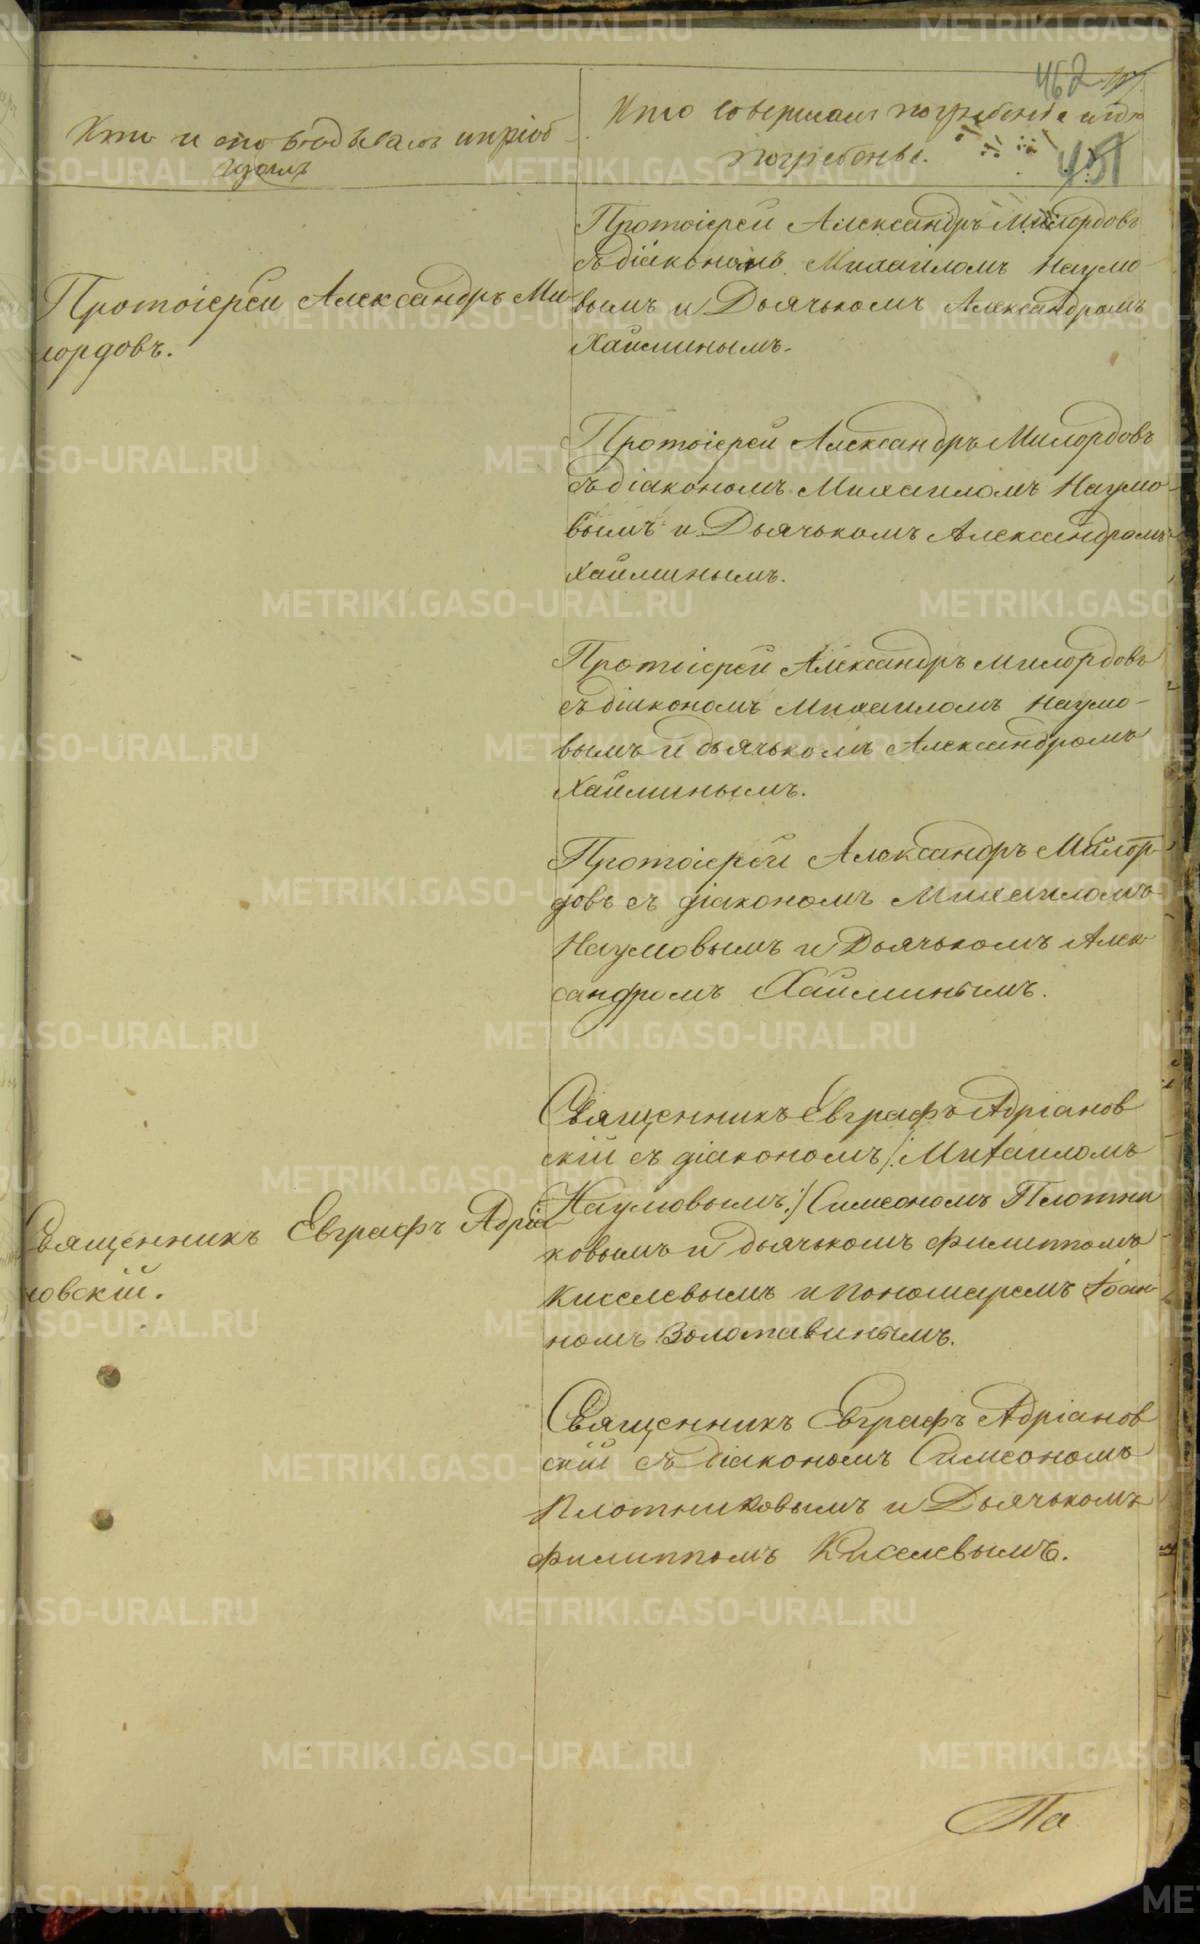 462
451
Кто и сповѣдывалъ и пріоб
щалъ
Кто совершалъ погребеніе и гдѣ
погребены.
Протоіерей Александръ Ми
лордовъ.
Протоіерей Александръ Милордовъ
съ діакономъ Михаиломъ Наумо
вымъ и Дьячькомъ Александромъ
Хайминымъ.
Протоіерей Александръ Милордовъ
съ діакономъ Михаиломъ Наумо-
вымъ и Дьячькомъ Александромъ
Хайминымъ.
Протоіерей Александръ Милордовъ
съ діакономъ Михаиломъ Наумо-
вымъ и дьячькомъ Александромъ
Хайминымъ.
Протоіерей Александръ Милор-
довъ съ діакономъ Михаиломъ
Наумовымъ и Дьячькомъ Алек
сандромъ Хайминымъ.
Священникъ Евграфъ Адріа
новскій.
Священникъ Евграфъ Адріанов
скій съ діакономъ /: Михаиломъ
Наумовымъ :/ Симеономъ Плотни
ковымъ и дьячькомъ Филиппомъ
Киселевымъ и пономаремъ Іоан-
номъ Золотавинымъ.
Священникъ Евграфъ Адріанов
скій съ Діакономъ Симеономъ
Плотниковымъ и Дьячькомъ
Филиппомъ Киселевымъ.
По
METRIKI.GASO-URAL.RU